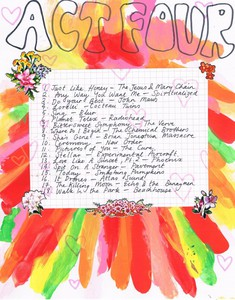 ACT FOUR
1. Just Like Honey - The Jesus & Mary Chain
2. Any Way You Want Me - Spiritualized
3. Do Your Best - John Maus
4. Lorelei - Cocteau Twins
5. Sing - Blur
Talk - Radiohead
Bittersweet Symphony - The Verve
Where Do I Begin - The Chemical Brothers
Open Heart - Brian Jonestown Massacre
10. Ceremony - New Order
11. Pictures of You - The Cure
12. Stellar - Experimental Aircraft
13. Love Like A Sunset, Pt. 2 - Phoenix
14. Spit On A Stranger - Pavement
15. Today - Smashing Pumpkins
16. It Drones - Atlas Sound
17. The Killing Moon - Echo & the Bunnymen
18. Walk in the Park - Beach House